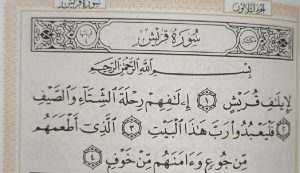 الجزء الثلاثون سورة قريش
سُورَةُ قُرَيْشٍ
بِسْمِ اللَّهِ الرَّحْمَٰنِ الرَّحِيمِ
لِإِيلَٰفِ قُرَيْشٍ ١ إِۦلَٰفِهِمْ رِحْلَةَ الشِّتَآءِ وَالصَّيْفِ
٢ فَلْيَعْبُدُوا۟ رَبَّ هَٰذَا الْبَيْتِ ٣ الَّذِىٓ أَطْعَمَهُم
مِّن جُوعٍ وَءَامَنَهُم مِّنْ خَوْفٍ ٤